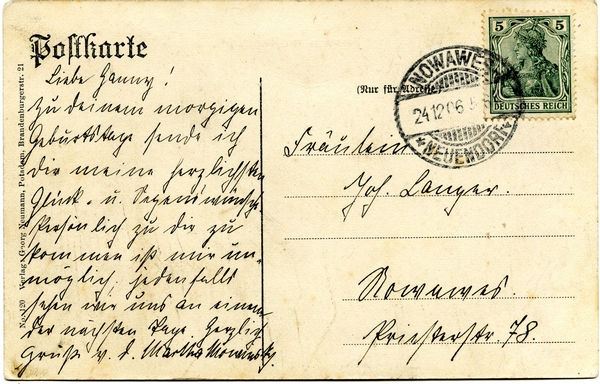 Postkarte
Liebe Hanny!
Zu deinem morgigen
Geburtstage sende ich
dir meine herzlichsten
Glück- u. Segenswünsche.
Persönlich zu dir zu
kommen ist mir un-
möglich, jedenfalls
sehen wir uns an einem
der nächsten Tage. Herzlich
Gruß v. d. Martha
No. 120 Verlag Georg Neumann, Potsdam, Brandenburgerstr. 21
(Nur für Adresse)
NOWAWES
24.12.06
*NEUENDORF
5 5
DEUTSCHES REICH
Fräulein
Joh. Langer.
Nowawes
Priesterstr. 78.